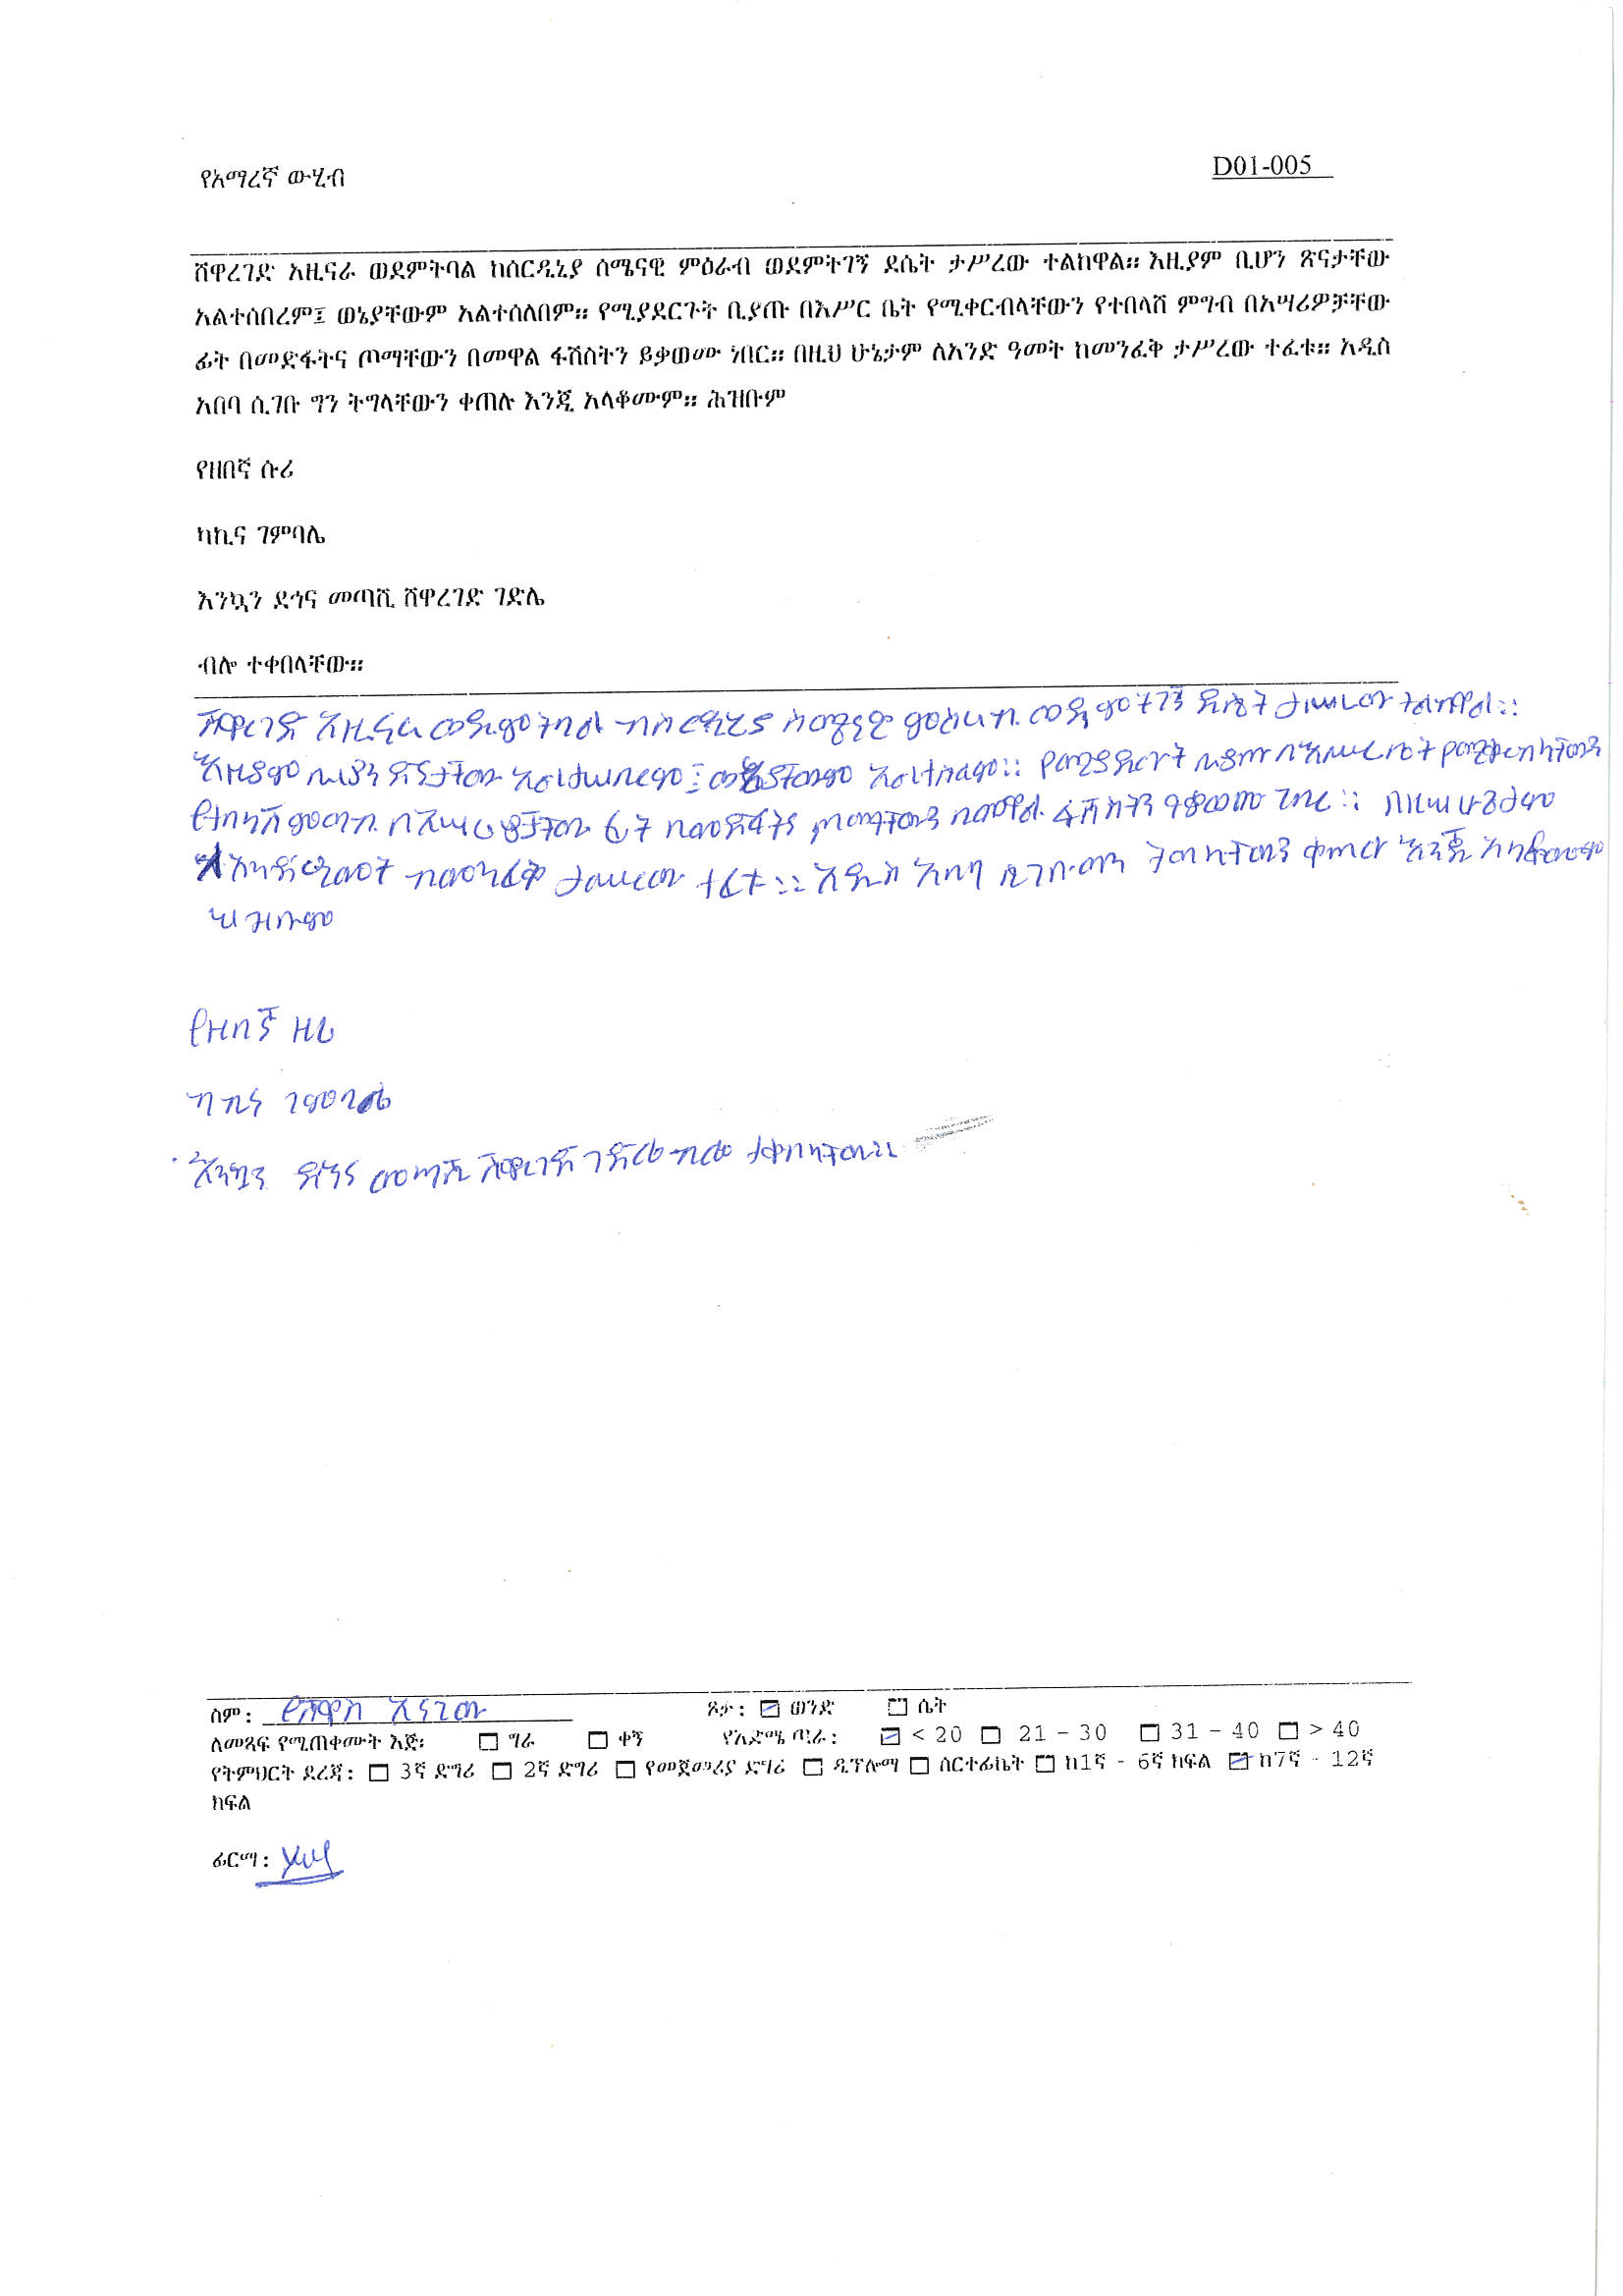 የአማረኛ ውሂብ
D01-005
ሸዋረገድ አዚናራ ወደምትባል ከሰርዲኒያ ሰሜናዊ ምዕራብ ወደምትገኝ ደሴት ታሥረው ተልከዋል። እዚያም ቢሆን ጽናታቸው
አልተሰበረም፤ ወኔያቸውም አልተሰለበም። የሚያደርጉት ቢያጡ በእሥር ቤት የሚቀርብላቸውን የተበላሸ ምግብ በአሣሪዎቻቸው
ፊት በመድፋትና ጦማቸውን በመዋል ፋሽስትን ይቃወሙ ነበር። በዚህ ሁኔታም ለአንድ ዓመት ከመንፈቅ ታሥረው ተፈቱ። አዲስ
አበባ ሲገቡ ግን ትግላቸውን ቀጠሉ እንጂ አላቆሙም። ሕዝቡም
የዘበኛ ሱሪ
ካኪና ገምባሌ
እንኳን ደኅና መጣሺ ሸዋረገድ ገድሌ
ብሎ ተቀበላቸው።
ሸዋረገድ አዚናራ ወደምትባል ከሰርዲኒያ ሰሜናዊ ምዕራብ ወደምትገኝ ደሴት ታሠረው ተልከዋል።
እዚያም ቢሆን ጽናታቸው አልተሠበረም፤ ወኔያቸውም አልተሰለበም። የሚያደርጉት ቢያጡ በእሥር ቤት የሚቀርብላቸውን
የተበላሸ ምግብ በአሣሪዎቻቸው ፊት በመድፋትና ጦማቸውን በመዋል ፋሽስትን ይቃወሙ ነበር። በዚህ ሁኔታም
ለአንድ ዓመት ከመንፈቅ ታሠረው ተፈቱ። አዲስ አበባ ሲገቡ ግን ትግላቸውን ቀጠሉ እንጂ አላቆሙም
ሕዝቡም
የዘበኛ ዘሪ
ካኪና ገምባሌ
እንኳን ደኅና መጣሺ ሸዋረገድ ገድሌ ብሎ ተቀበላቸው።
ስም: የሽዋስ አናገው ጾታ: ወንድ ሴት
ለመጻፍ የሚጠቀሙት እጅ: ግራ ቀኝ የእድሜ ጣራ: < 20 21 - 30 31 - 40 > 40
የትምህርት ደረጃ: 3ኛ ድግሪ 2ኛ ድግሪ የመጀመሪያ ድግሪ ዲፕሎማ ሰርተፊኬት ከ1ኛ - 6ኛ ክፍል ከ7ኛ - 12ኛ
ክፍል
ፊርማ: